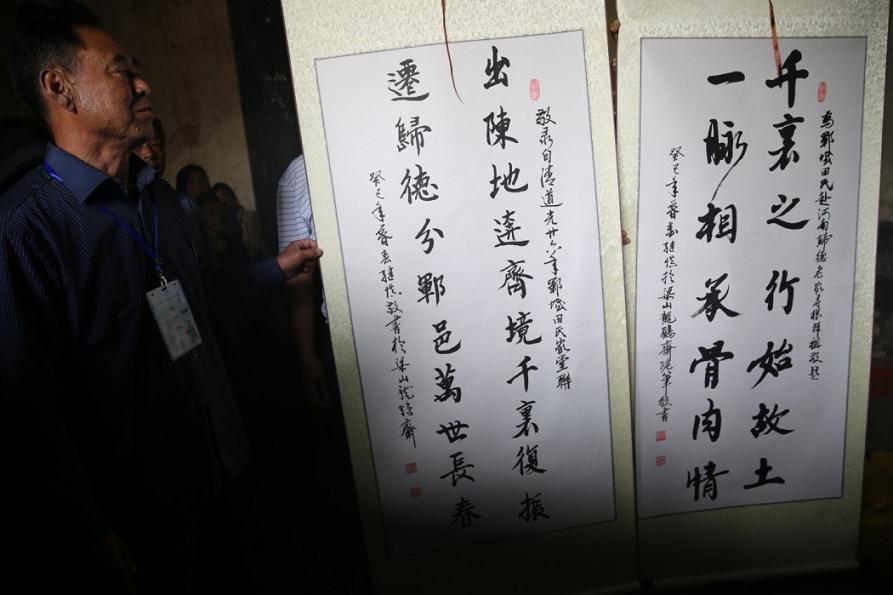 為鄆城田氏赴河南歸德老家尋根拜祖敬題
千裏之行始故土
一脉相承骨肉情
癸巳年暮春於梁山龍齋敬書
敬录自清道光廿六年鄆城田氏家堂聯
出陳地逩齊境千裏復振
遷歸德分鄆邑萬世長春
癸巳年暮春敬書於梁山龍齋